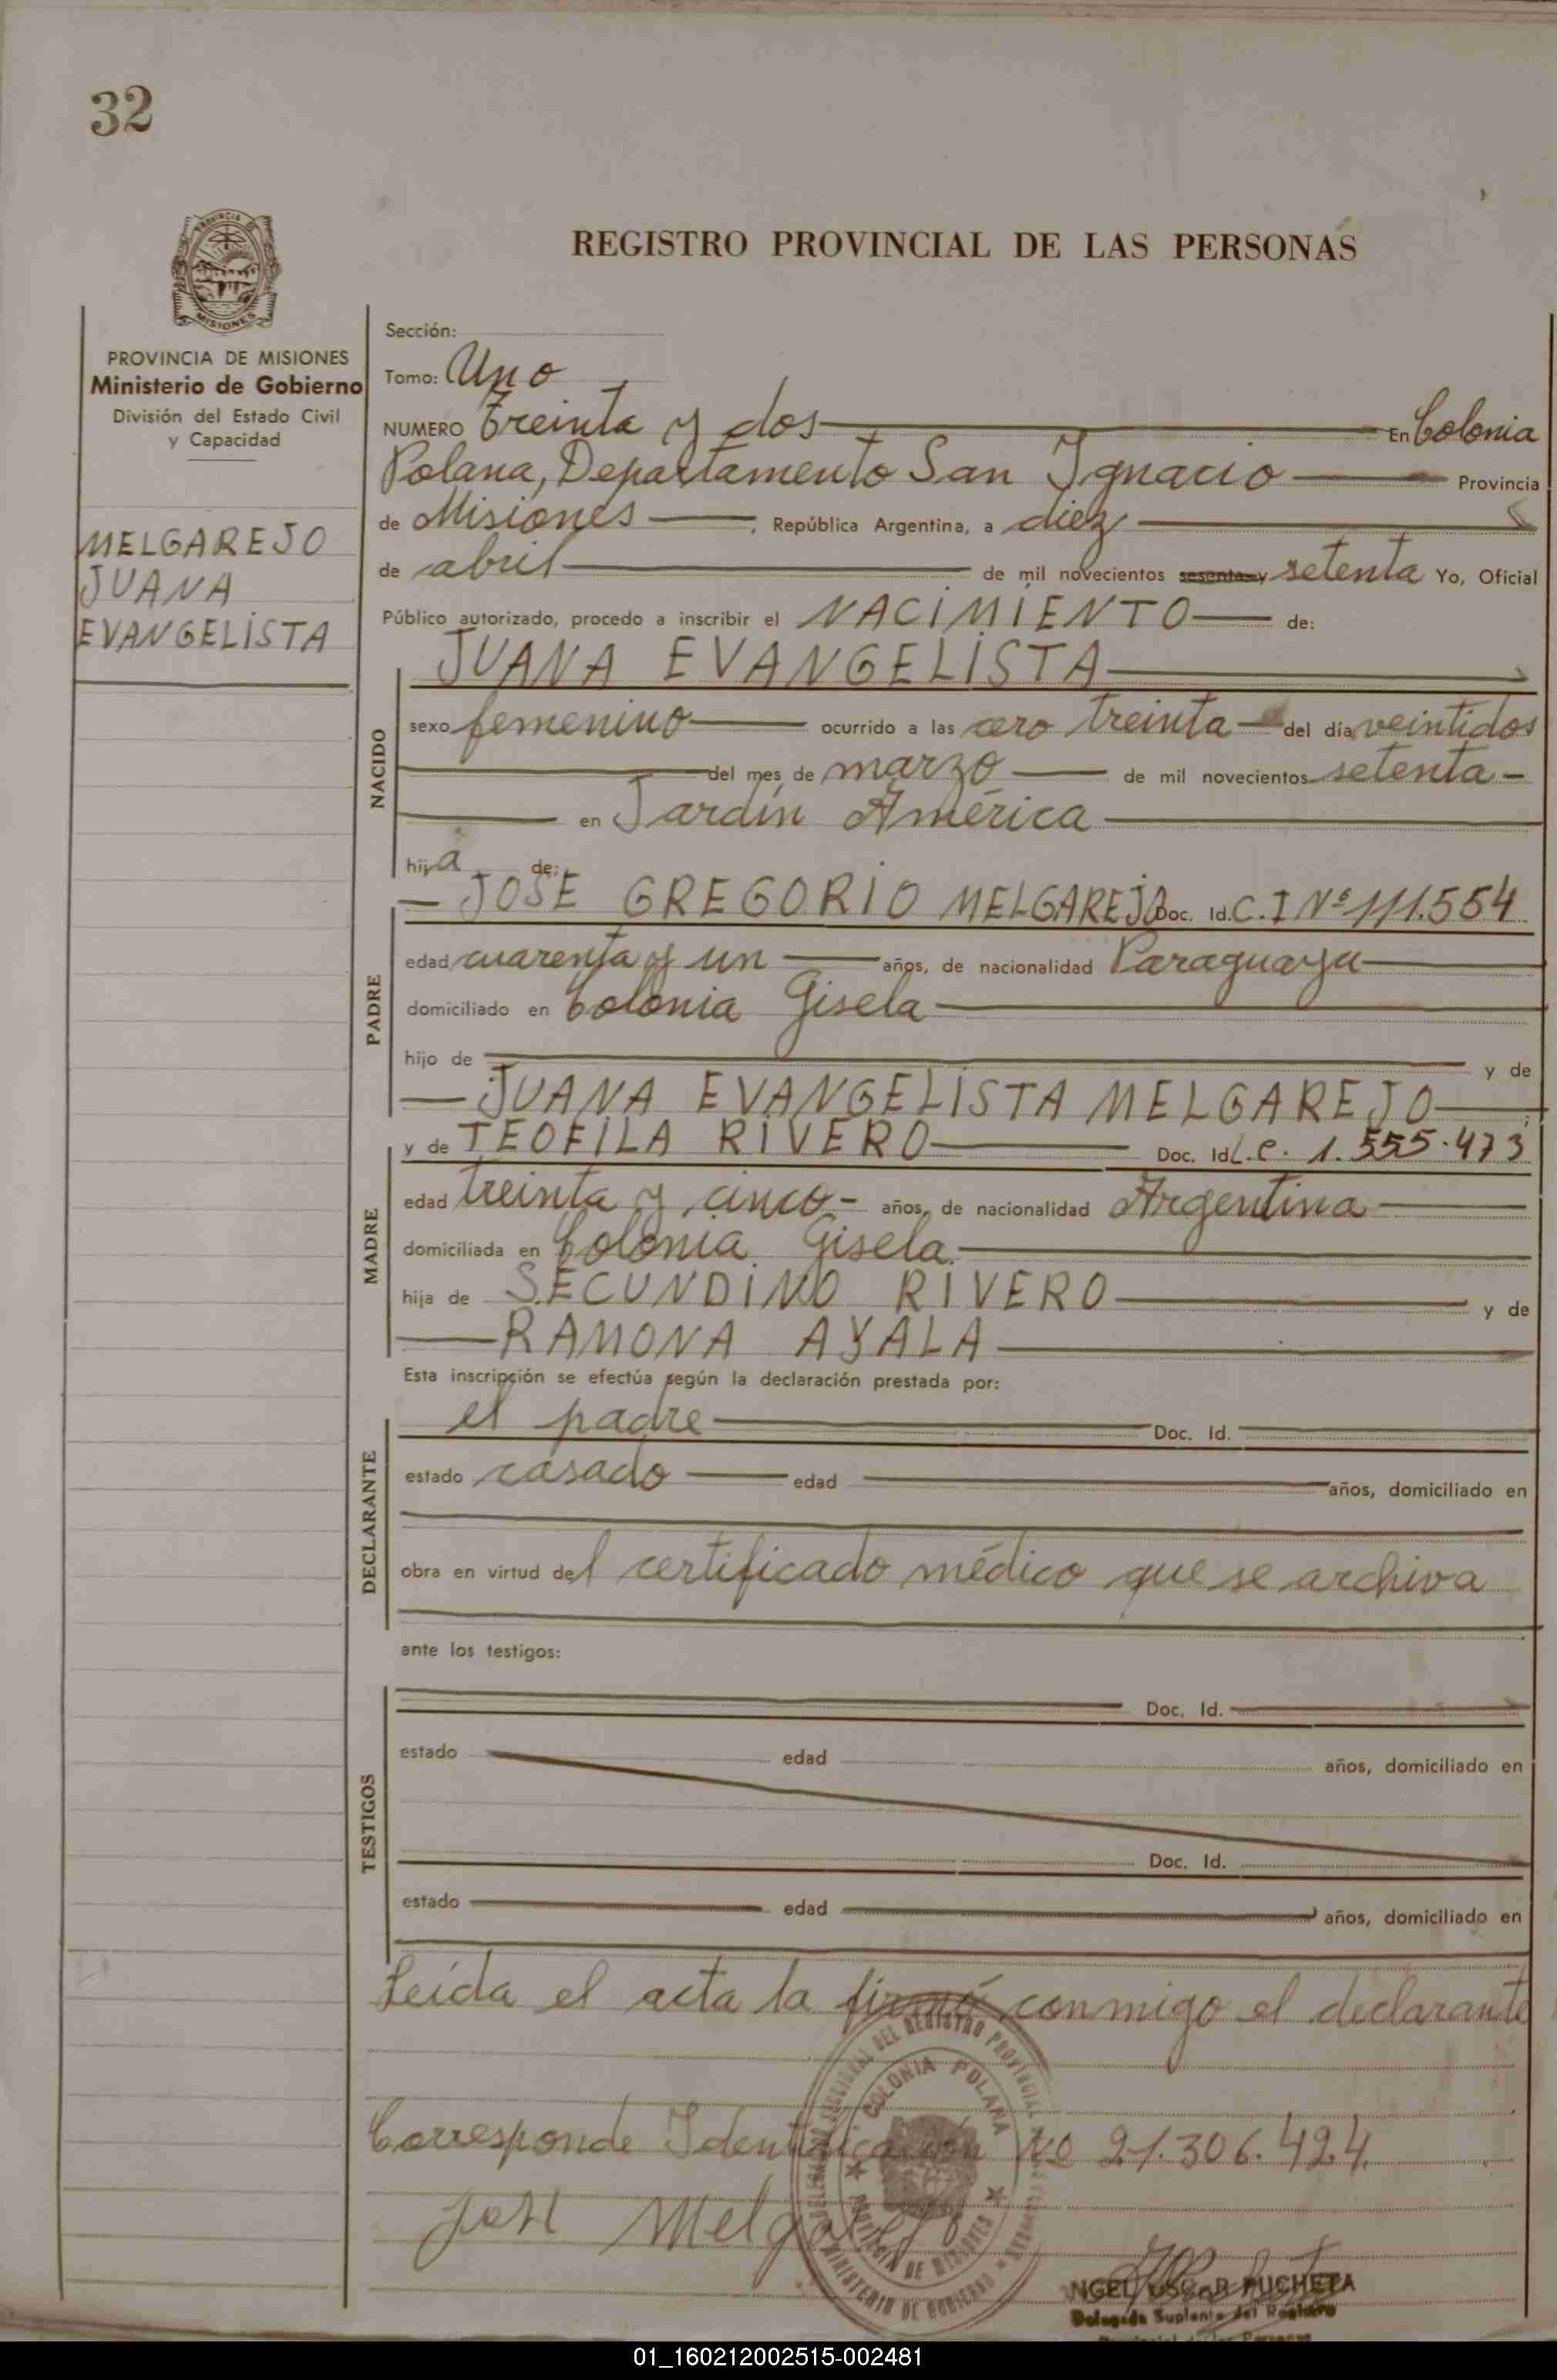 32
PROVINCIA
MISIONES
REGISTRO PROVINCIAL DE LAS PERSONAS
PROVINCIA DE MISIONES
Ministerio de Gobierno
División del Estado Civil
y Capacidad
MELGAREJO
JUANA
EVANGELISTA
Sección:
Tomo: Uno
NUMERO Treinta y dos En Colonia
Polana, Departamento San Ignacio Provincia
de Misiones , República Argentina, a diez
de abril de mil novecientos sesenta y setenta Yo, Oficial
Público autorizado, procedo a inscribir el NACIMIENTO de:
JUANA EVANGELISTA
NACIDO
sexo femenino ocurrido a las cero treinta del día veintidos
del mes de marzo de mil novecientos setenta
en Jardín América
hija de:
JOSE GREGORIO MELGAREJO Doc. Id. C.I Nº 111.554
PADRE
edad cuarenta y un años, de nacionalidad Paraguaya
domiciliado en Colonia Gisela
hijo de y de
JUANA EVANGELISTA MELGAREJO
y de TEOFILA RIVERO Doc. Id L.C. 1.555.473
MADRE
edad treinta y cinco años, de nacionalidad Argentina
domiciliada en Colonia Gisela
hija de SECUNDINO RIVERO y de
RAMONA AYALA
Esta inscripción se efectúa según la declaración prestada por:
el padre Doc. Id.
DECLARANTE
estado casado edad años, domiciliado en
obra en virtud del certificado médico que se archiva
ante los testigos:
TESTIGOS
Doc. Id.
estado edad años, domiciliado en
Doc. Id.
estado edad años, domiciliado en
Leída el acta la firmó conmigo el declarante
DEL REGISTRO PROVINCIAL
COLONIA POLANA
PROVINCIA DE MISIONES
MINISTERIO DE GOBIERNO
Corresponde Identificación Nº 21.306.424
José Melgarejo
NGEL OSCAR PUCHETA
Delegado Suplente del Registro
01_160212002515-002481